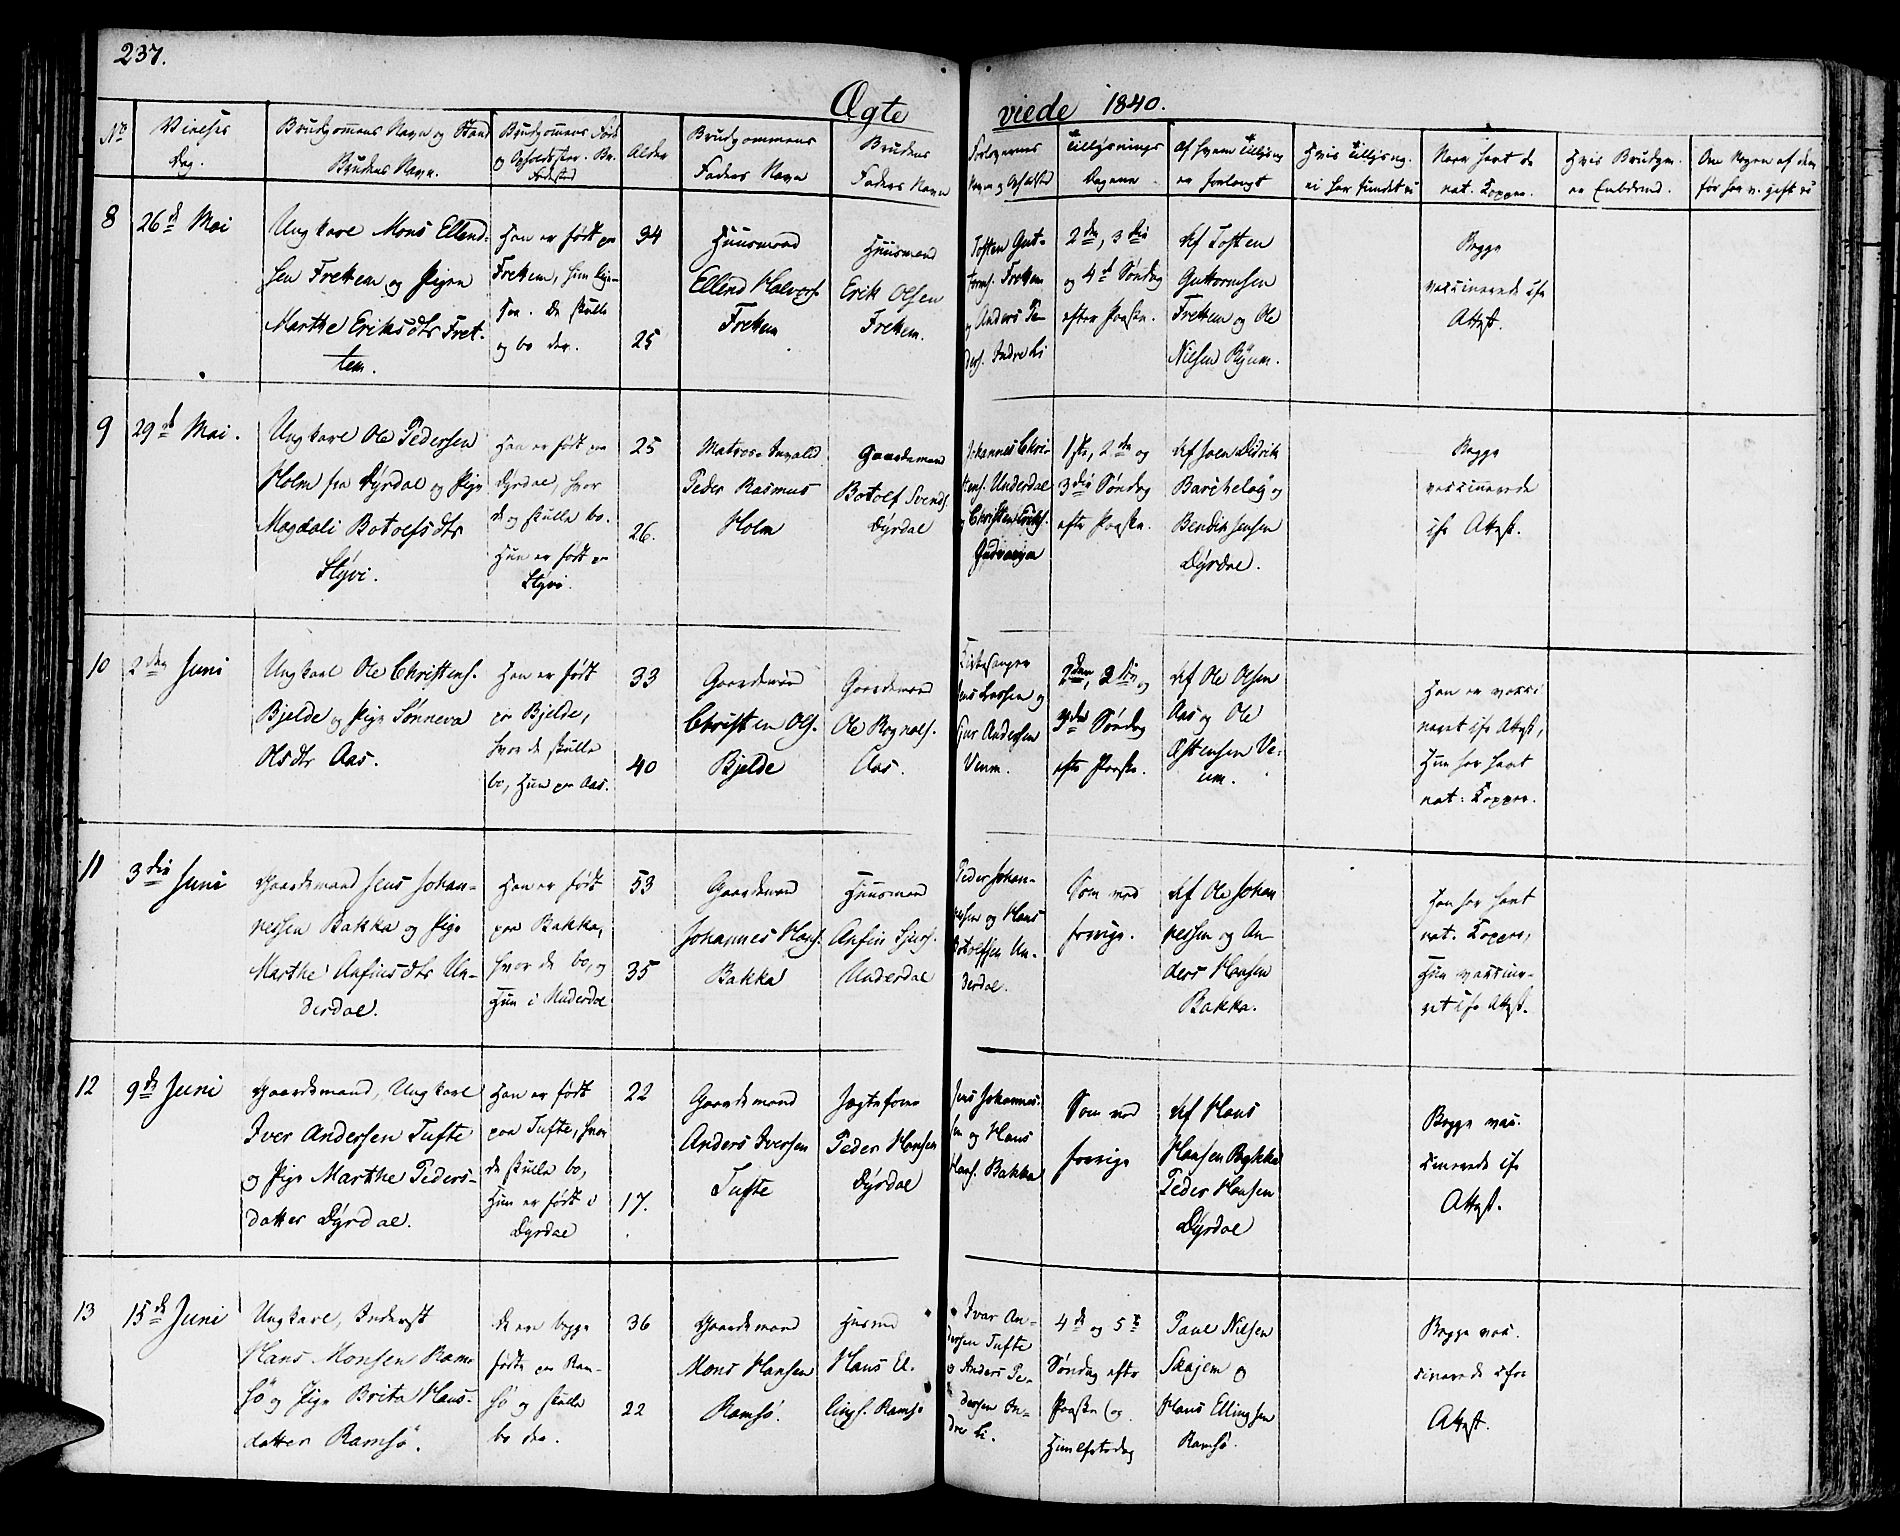 237.
Ægte viede 1840.
No
Vielses Dag.
Brudgommens Navn og Stand
Brudens Navn.
Brudgommens Føde og Opholdsster. Br. Fødested
Alder
Brudgommens
Faders Navn
Brudens
Faders Navn
Forlovernes
Navn og Opholdsted
Tillysnings
Dagene.
Af hvem Tillysng
er forlangt
Hvis Tillysng.
ei har fundet st
Naar havt de
nat. Kopper.
Hvis Brudgm.
er Enkemd.
Om Nogen af dem
før har v. gift
8
26de Mai
Ungkarl Mons Ellend-
sen Frettem og Pigen
Marthe Eriksdtr Fret-
tem.
Han er født paa
Frettem, hun lige-
saa. De skulle
og bo der.
34
25
Huusmand
Ellend Halvors.
Frettem
Huusmand
Erik Olsen
Frettem.
Tosten Gut-
torms. Frettem
og Anders Pe-
ders. Indre Li
2den, 3die
og 4de Søndag
efter Paaske.
Af Tosten
Guttormsen
Frettem og Ole
Nielsen Ryum.
Begge
vaccinerede ifø
Attest.
9
29de Mai.
Ungkarl Ole Pedersen
Holm fra Dÿrdal og Pige
Magdali Botolfsdtr
Stÿvi.
Han er født paa
Dyrdal, hvor
de og skulle bo.
Hun er født paa
Stÿvi.
25
26.
Matros. Invalid
Peder Rasmus
Holm
Gaardmand
Botolf Svends.
Dÿrdal
Johannes Chri-
stens. Underdal
og Christen Eriks.
Gudvangen
1ste, 2den og
3die Søndag
efter Paaske.
Af Joen Didrik
Barthelog
Bendik Jensen
Dÿrdal.
Begge
vaccinerede
ifø Attest.
10
2den Juni
Ungkarl Ole Christens.
Bjelde og Pige Sønneva
Olsdtr Aas.
Han er født
paa Bjelde,
hvor de skulle
bo, Hun paa Aas.
33
40
Gaardmand
Christen Ols.
Bjelde
Gaardmand
Ole Rognals.
Aas.
Kirkesanger
Jens Larsen og
Siur Andersen
Venm.
2den, 3die og
Søndag
efter Paaske.
Af Ole Olsen
Aas og Ole
Østensen Ve-
um.
Han er vacci
neret ifø Attest,
Hun har havt
nat. Kopper.
11
3die Juni
Gaardmand Jens Johan-
nessen Bakka og Pige
Marthe Anfinsdtr Un-
derdal.
Han er født
paa Bakka,
hvor de bo, og
Hun i Underdal
53
35
Gaardmand
Johannes Hans.
Bakka
Huusmand
Anfin Sjurs.
Underdal
Peder Johan-
nesen og Hans
Botolfsen Un-
derdal.
Som ved
forrige.
Af Ole Johan
nessen og An-
ders Hansen
Bakka.
Han har havt
nat. Kopper,
Hun vaccine-
ret ifø Attest.
12
9de Juni
Gaardmand, Ungkarl
Iver Andersen Tufte
og Pige Marthe Peders-
datter Dÿrdal.
Han er født
paa Tufte, hvor
de skulle bo,
Hun er født i
Dyrdal
22
17.
Gaardmand
Anders Iversen
Tufte
Jægtefører
Peder Hansen
Dÿrdal
Jens Johannes-
sen og Hans
Hans. Bakka
Som ved
forrige
Af Hans
Hansen Bakka
Peder Hansen
Dÿrdal
Begge vac-
cinerede ifø
Attest.
13
15de Juni
Ungkarl, Inderst
Hans Monsen Ram-
sö og Pige Brita Hans-
datter Ramsö.
De ere begge
fødte paa Ram-
sö og skulle
bo der.
36
22
Gaardmand
Mons Hansen
Ramsö.
Husmd
Hans El-
lings. Ramsö
Ivar An-
dersen Tufte
og Anders Pe-
dersen In-
dre Li.
4de og 5te
Søndag efter
Paaske (og
Himlfartsdag
Paul Nielsen
Skajem og
Hans Ellingsen
Ramsö.
Begge vac-
cinerede ifø
Attest.